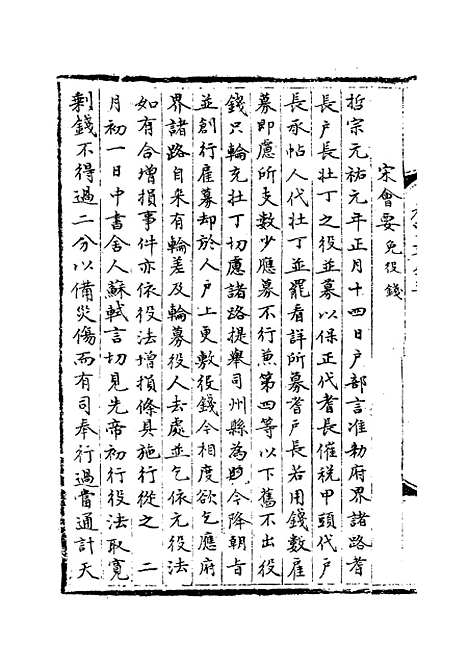 宋會要 免役錢
哲宗元祐元年正月十四日戶部言准勅府界諸路耆
長戶長壯丁之役並募以保正代耆長催稅甲頭代戶
長承帖人代壯丁並罷看詳所募耆戶長若用錢數雇
募即慮所支數少應募不行兼第四等以下舊不出役
錢只輪充壯丁切慮諸路提舉司州縣為見今降朝旨
並創行雇募却於人戶上更敷役錢今相度欲乞應府
界諸路自来有輪差及輪募役人去處並乞依元役法
如有合增損事件亦依役法增損條具施行從之 二
月初一日中書舍人蘇軾言切見先帝初行役法取寬
剩錢不得過二分以備災傷而有司奉行過當通計天